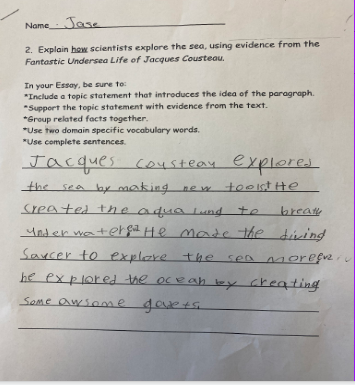 Name Jase
2. Explain how scientists explore the sea, using evidence from the
Fantastic Undersea Life of Jacques Cousteau.
In your Essay, be sure to:
*Include a topic statement that introduces the idea of the paragraph.
*Support the topic statement with evidence from the text.
*Group related facts together.
*Use two domain specific vocabulary words.
*Use complete sentences.
Jacques cousteau explores
the sea by making new tools. He
created the aqua lung to breath
underwater. He made the diving
Saucer to explore the sea more
he explored the ocean by creating
some awsome